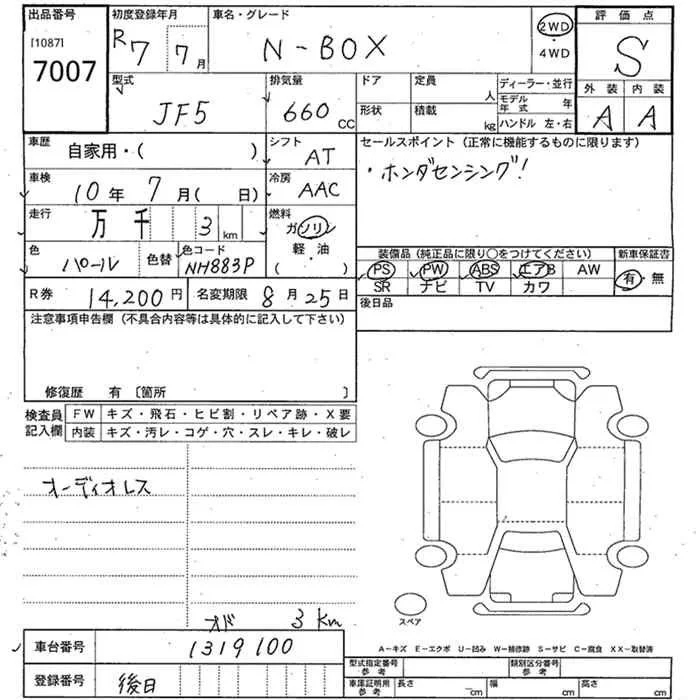 出品番号 初度登録年月 車名・グレード 評価点
[1087] 7007 R7 7月 N-BOX 2WD・4WD S
型式 排気量 ドア 定員 人 ディーラー・並行 外装 内装
JF5 660 CC 形状 積載 kg モデル年式 年 A A
ハンドル 左・右
車歴 自家用・( ) シフト AT セールスポイント(正常に機能するものに限ります)
車検 10年 7月( 日) 冷房 AAC ・ホンダセンシング!
走行 万 千 3 km 燃料 ガソリン 軽・油 ( ・ )
色 パール 色替 色コード NH883P 装備品(純正品に限り○をつけてください) 新車保証書
PS PW ABS エアB AW 有・無
SR ナビ TV カワ
R券 14,200円 名変期限 8月25日 後日品
注意事項申告欄(不具合内容等は具体的に記入して下さい)
修復歴 有〔箇所 〕
検査員記入欄 FW キズ・飛石・ヒビ割・リペア跡・X要
内装 キズ・汚レ・コゲ・穴・スレ・キレ・破レ
オーディオレス
スペア
オド 3Km
車台番号 1319100 A-キズ E-エクボ U-凹み W-補修跡 S-サビ C-腐食 XX-取替済
型式指定番号 参考 類別区分番号 参考
登録番号 後日 車庫証明用 参考 長さ cm 幅 cm 高さ cm